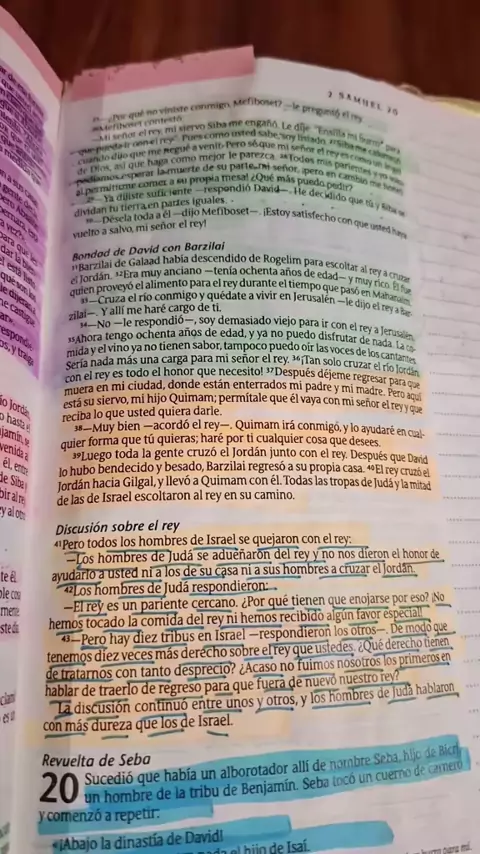 2 SAMUEL 20
—¿Por qué no viniste conmigo, Mefiboset? —le preguntó el rey.
Mefiboset contestó:
—Mi señor el rey, mi siervo Siba me engañó. Le dije: "Ensilla mi burro" para
que pueda ir con el rey". Pues como usted sabe, soy lisiado.
cuando dijo que me negué a venir. Pero sé que mi señor el rey es como un ángel
de Dios, así que haga como mejor le parezca. Todos mis parientes y yo
podíamos esperar la muerte de su parte, mi señor, ¡pero en cambio me
al permitirme comer a su propia mesa! ¿Qué más puedo pedir?
—Ya dijiste suficiente —respondió David—. He decidido que tú y Siba se
dividan tu tierra en partes iguales.
—Désela toda a él —dijo Mefiboset—. ¡Estoy satisfecho con que usted haya
vuelto a salvo, mi señor el rey!
Bondad de David con Barzilai
31Barzilai de Galaad había descendido de Rogelim para escoltar al rey a cruzar
el Jordán. 32Era muy anciano —tenía ochenta años de edad— y muy rico. Él fue
quien proveyó el alimento para el rey durante el tiempo que pasó en Mahanaim.
33—Cruza el río conmigo y quédate a vivir en Jerusalén —le dijo el rey a Bar-
zilai—. Y allí me haré cargo de ti.
34—No —le respondió—, soy demasiado viejo para ir con el rey a Jerusalén.
35Ahora tengo ochenta años de edad, y ya no puedo disfrutar de nada. La co-
mida y el vino ya no tienen sabor, tampoco puedo oír las voces de los cantantes.
Sería nada más una carga para mi señor el rey. 36¡Tan solo cruzar el río Jordán
con el rey es todo el honor que necesito! 37Después déjeme regresar para que
muera en mi ciudad, donde están enterrados mi padre y mi madre. Pero aquí
está su siervo, mi hijo Quimam; permítale que él vaya con mi señor el rey y que
reciba lo que usted quiera darle.
38—Muy bien —acordó el rey—. Quimam irá conmigo, y lo ayudaré en cual-
quier forma que tú quieras; haré por ti cualquier cosa que desees.
39Luego toda la gente cruzó el Jordán junto con el rey. Después que David
lo hubo bendecido y besado, Barzilai regresó a su propia casa. 40El rey cruzó el
Jordán hacia Gilgal, y llevó a Quimam con él. Todas las tropas de Judá y la mitad
de las de Israel escoltaron al rey en su camino.
Discusión sobre el rey
41Pero todos los hombres de Israel se quejaron con el rey:
—Los hombres de Judá se adueñaron del rey y no nos dieron el honor de
ayudarlo a usted ni a los de su casa ni a sus hombres a cruzar el Jordán.
42Los hombres de Judá respondieron:
—El rey es un pariente cercano. ¿Por qué tienen que enojarse por eso? ¡No
hemos tocado la comida del rey ni hemos recibido algún favor especial!
43—Pero hay diez tribus en Israel —respondieron los otros—. De modo que
tenemos diez veces más derecho sobre el rey que ustedes. ¿Qué derecho tienen
de tratarnos con tanto desprecio? ¿Acaso no fuimos nosotros los primeros en
hablar de traerlo de regreso para que fuera de nuevo nuestro rey?
La discusión continuó entre unos y otros, y los hombres de Judá hablaron
con más dureza que los de Israel.
Revuelta de Seba
20 Sucedió que había un alborotador allí de nombre Seba, hijo de Bicri,
un hombre de la tribu de Benjamín. Seba tocó un cuerno de carnero
y comenzó a repetir:
«¡Abajo la dinastía de David!
el hijo de Isaí.